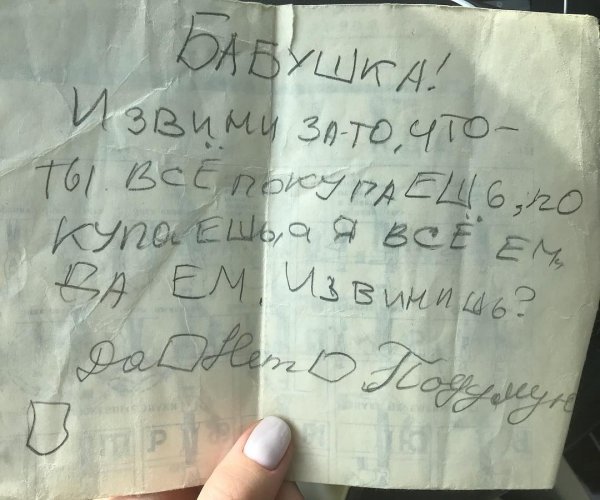 БАБУШКА!
ИЗВИНИ ЗА-ТО, ЧТО-
ТЫ ВСЁ ПОКУПАЕШЬ, ПО
КУПАЕШЬ, А Я ВСЁ ЕМ,
ДА ЕМ. ИЗВИНИШЬ?
Да Нет Подумую